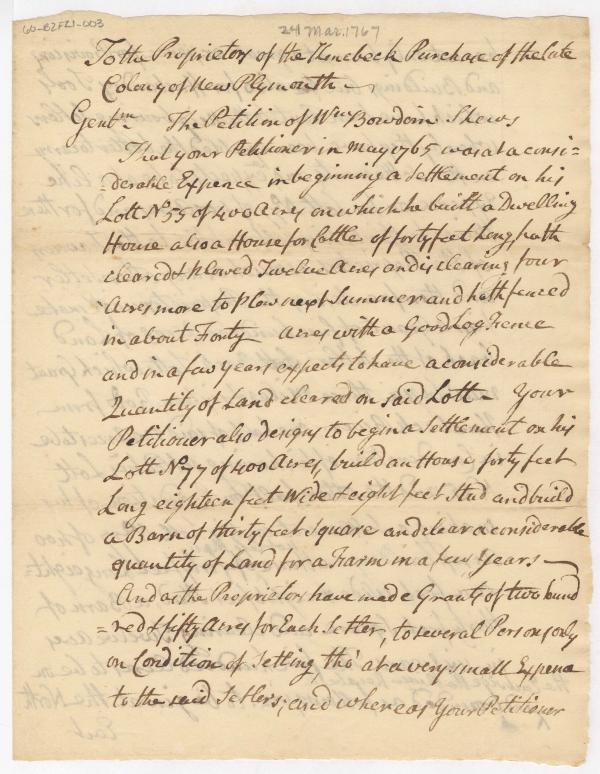 60-B2F21-003
24 Mar. 1767
To the Proprietors of the Kenebeck Purchase of the late
Colony of New Plymouth ~
Gentm The Petition of Wm Bowdoin Shews
That your Petitioner in May 1765 was at a consi=
=derable Expence in beginning a Settlement on his
Lott No. 55 of 400 Acres on which he built a Dwelling
House also a House for Cattle of forty feet Long, hath
cleared & plowed Twelve Acres and is clearing four
Acres more to plow next Summer and hath fenced
in about Forty Acres with a Good Log Fence
and in a few years expects to have a considerable
Quantity of Land cleared on said Lott ~ Your
Petitioner also designs to begin a Settlement on his
Lott No. 77 of 400 Acres, build an House forty feet
Long eighteen feet Wide & eight feet Stud and build
a Barn of thirty feet Square and clear a considerable
quantity of Land for a Farm in a few Years ~
And as the Proprietors have made Grants of two hund
=red & fifty Acres for Each Setler, to several Persons only
on Condition of Setling, tho' at a very small Expence
to the said Setlers; and whereas Your Petitioner